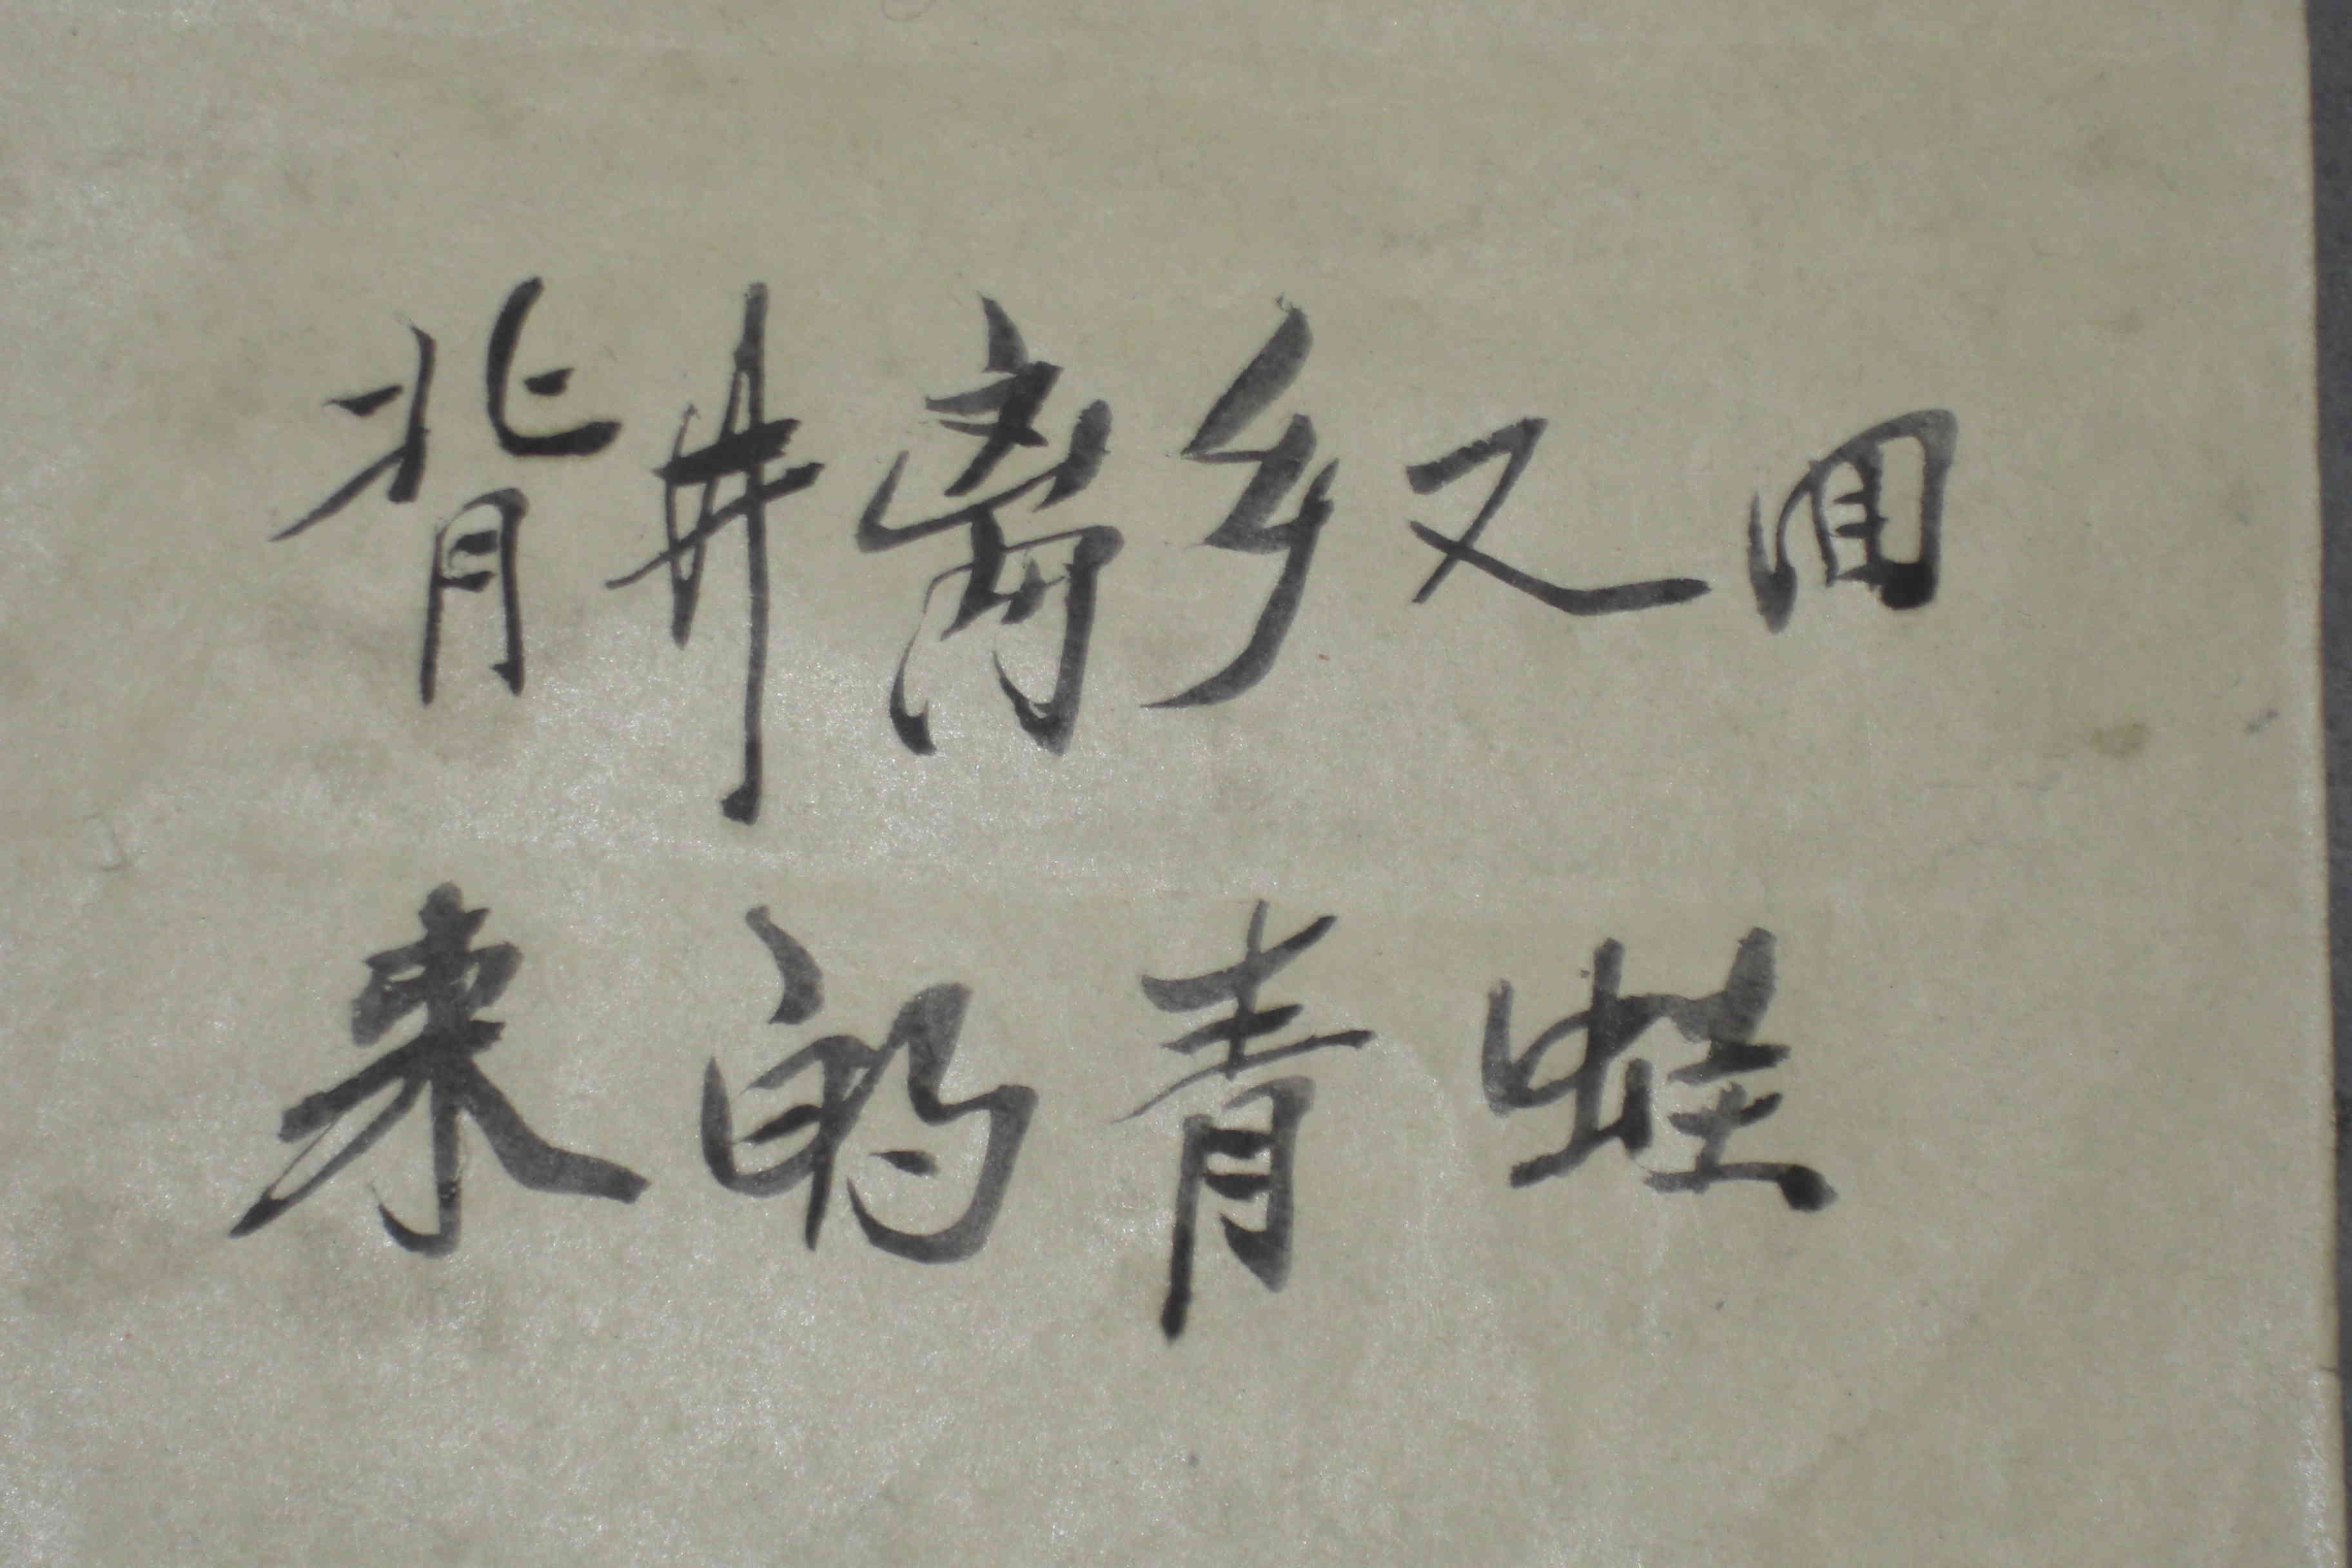 背井离乡又回
来的青蛙